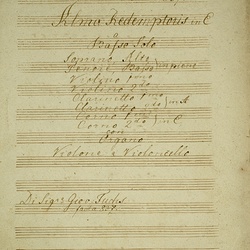 Alma Redemptoris in C
a
Basso Solo
Soprano, Alto
Tenore, Basso in pieni
Violino 1mo
Violino 2do
Clarinetto 1mo
Clarinetto 2do in A
Corno 1mo
Corno 2do in C
con
Organo
Violone e Violoncello
Di Sigre Giov. Fuchs